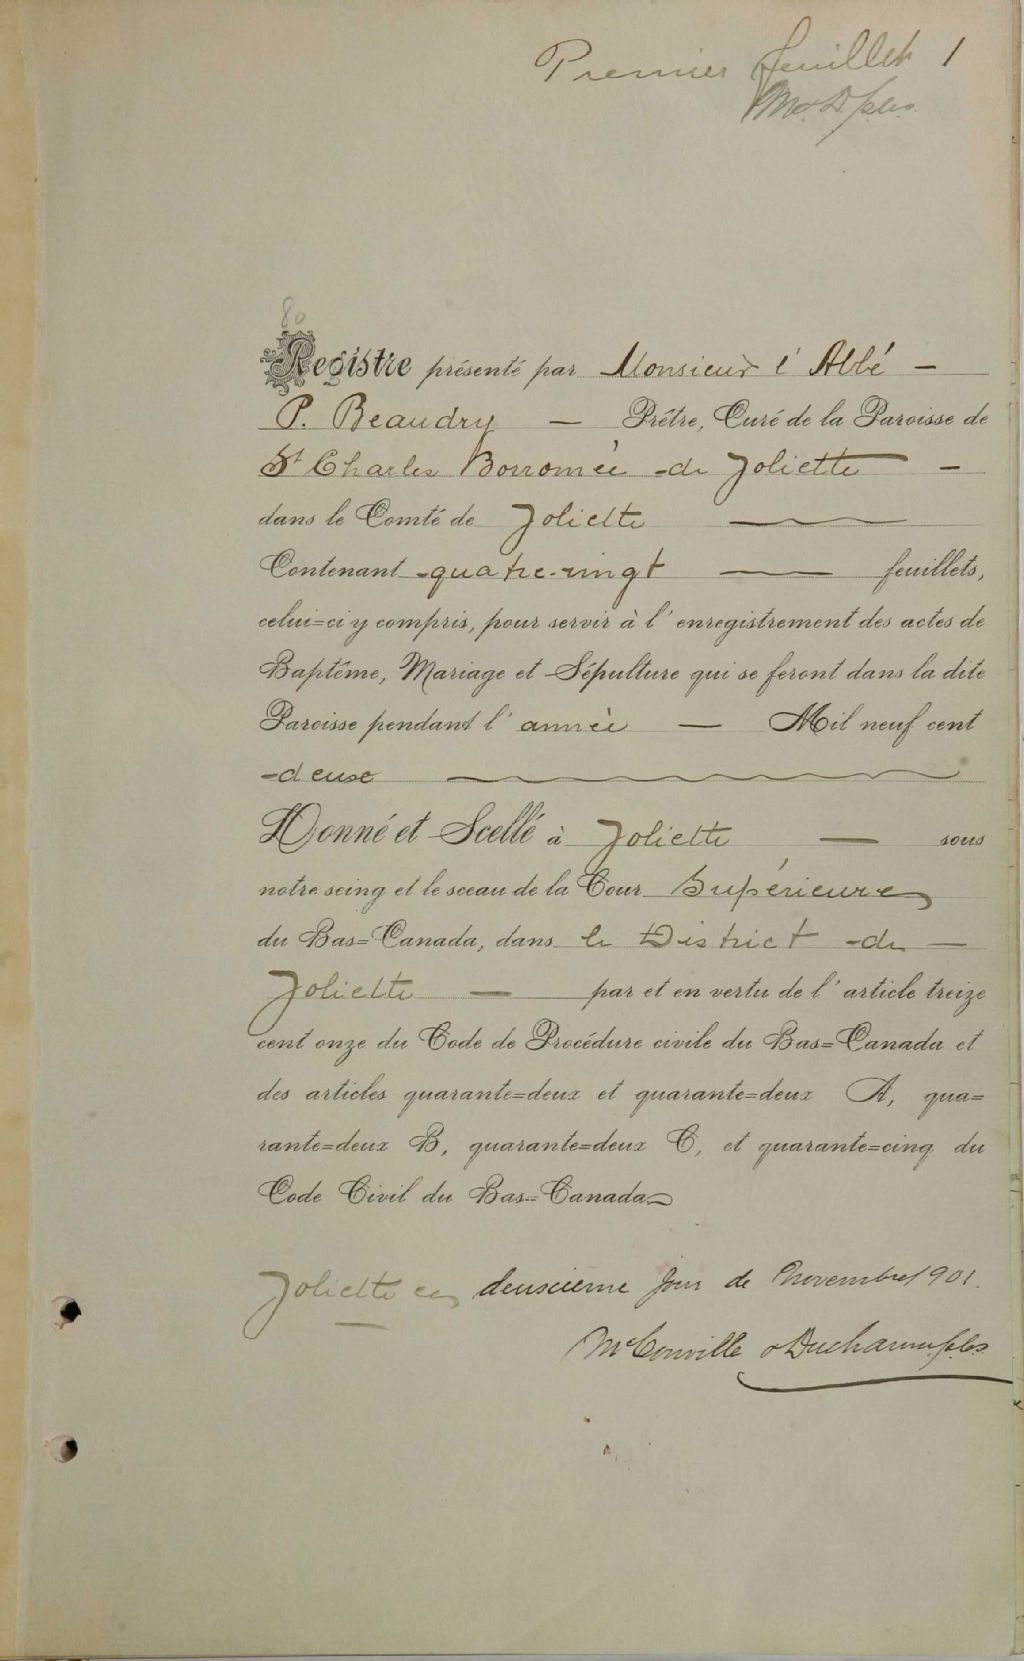 Premier feuillet 1
M & D p.c.s.
80
Registre présenté par Monsieur l'Abbé —
P. Beaudry — Prêtre, Curé de la Paroisse de
St Charles Borromée de Joliette —
dans le Comté de Joliette
Contenant quatre-vingt — feuillets,
celui=ci y compris, pour servir à l'enregistrement des actes de
Baptême, Mariage et Sépulture qui se feront dans la dite
Paroisse pendant l'année — Mil neuf cent
deux
Donné et Scellé à Joliette — sous
notre seing et le sceau de la Cour Supérieure
du Bas=Canada, dans le District de —
Joliette — par et en vertu de l'article treize
cent onze du Code de Procédure civile du Bas=Canada et
des articles quarante=deux et quarante=deux A, qua=
rante=deux B, quarante=deux C, et quarante=cinq du
Code Civil du Bas=Canada
Joliette ce deuxième jour de Novembre 1901.
McConville & Ducharme p.c.s.